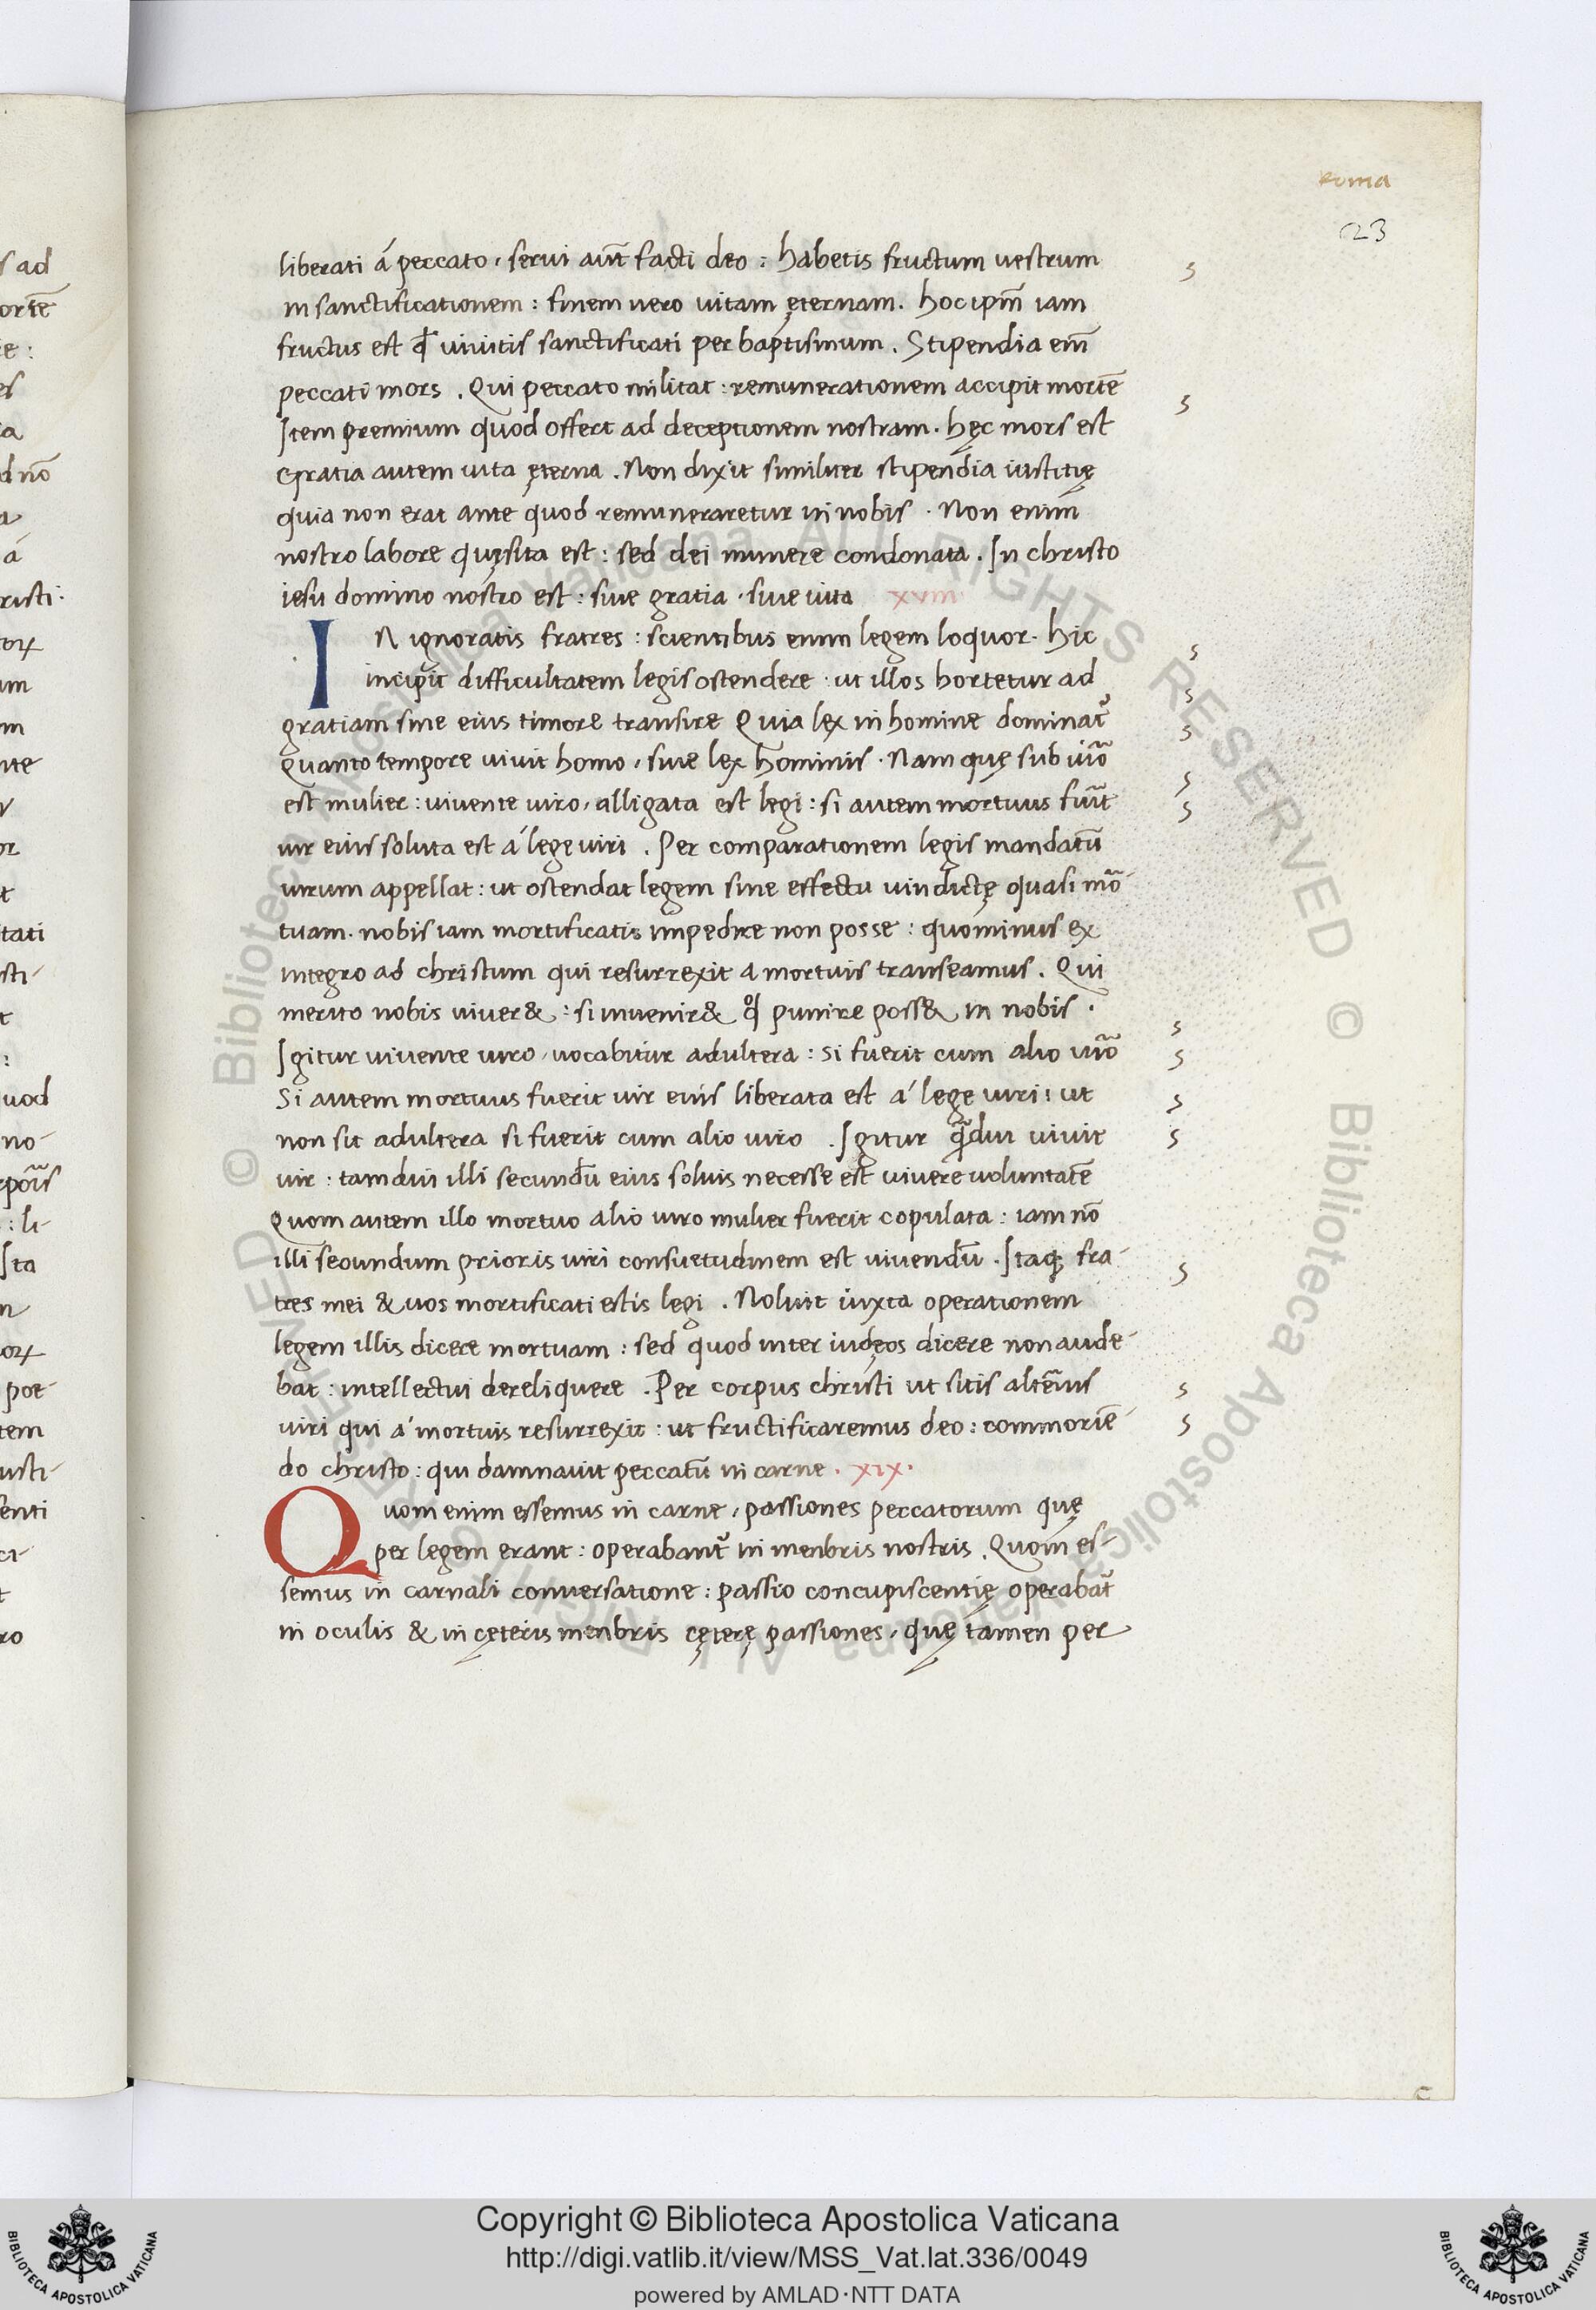 Roma
23
liberati á peccato, serui aut̃ facti deo : habetis fructum uestrum
in sanctificationem : finem uero uitam ęternam. hoc ipm̃ iam
fructus est ꝙ uiuitis sanctificati per baptismum. Stipendia em̃
peccati mors. Qui peccato militat : remunerationem accipit mortẽ
Item premium quod offert ad deceptionem nostram. hęc mors est
Gratia autem uita ęterna. Non dixit similiter stipendia iustitię
quia non erat ante quod remuneraretur in nobis. Non enim
nostro labore quęsita est : sed dei munere condonata. In christo
iesu domino nostro est : siue gratia, siue uita xviii
IN ignoratis fratres : scientibus enim legem loquor. hic
incipit difficultatem legis ostendere : ut illos hortetur ad
gratiam sine eius timore transire Quia lex in homine dominat᷑
Quanto tempore uiuit homo, siue lex hominis. Nam quę sub uiro
est mulier : uiuente uiro, alligata est legi : si autem mortuus fuıt̃
uir eius soluta est á lege uiri. Per comparationem legis mandatũ
uirum appellat : ut ostendat legem sine effectu uindictę quasi mõ-
tuam. nobis iam mortificatis impedire non posse : quominus ex
integro ad christum qui resurrexit a mortuis transeamus. Qui
merito nobis uiuer& : si inuenir& qͦd punire poss& in nobis.
Igitur uiuente uiro, uocabitur adultera : si fuerit cum alio uıõ
Si autem mortuus fuerit uir eius liberata est á lege uiri : ut
non sit adultera si fuerit cum alio uiro. Igitur q̃diu uiuit
uir : tamdiu illi secundũ eius soluis necesse est uiuere uoluntatẽ
Quom autem illo mortuo alio uiro mulier fuerit copulata : iam nõ
illi secundum prioris uiri consuetudinem est uiuendũ. Itaqꝫ fra-
tres mei & uos mortificati estis legi. Noluit iuxta operationem
legem illis dicere mortuam : sed quod inter iudęos dicere non aude-
bat : intellectui dereliquere. Per corpus christi ut sitis altẽius
uiri qui á mortuis resurrexit : ut fructificaremus deo : commoriẽ-
do christo : qui damnauit peccatũ in carne. xix.
Quom enim essemus in carne, passiones peccatorum quę
per legem erant : operabant᷑ in menbris nostris. Quom es-
semus in carnali conuersatione : passio concupiscentię operabat᷑
in oculis & in cęteris menbris cęterę passiones, quę tamen per
c
Copyright © Biblioteca Apostolica Vaticana
http://digi.vatlib.it/view/MSS_Vat.lat.336/0049
powered by AMLAD·NTT DATA